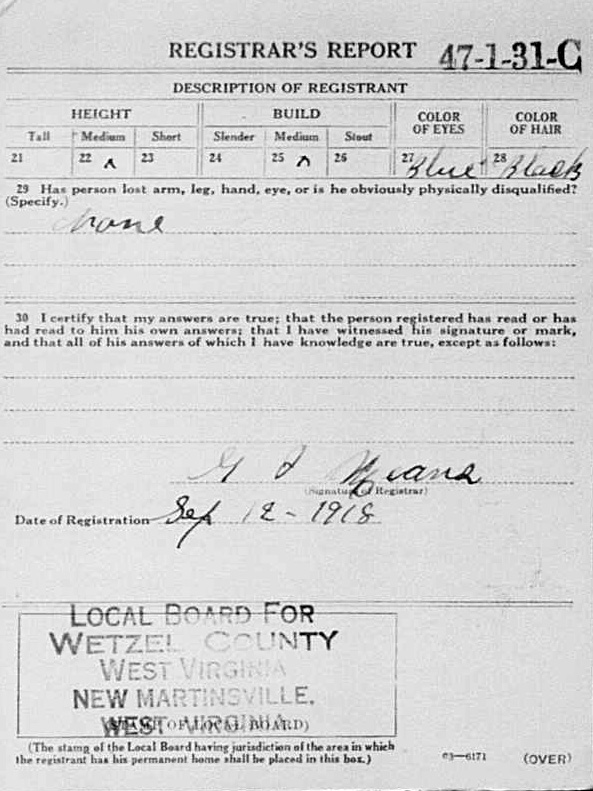 REGISTRAR'S REPORT 47-1-31-C
DESCRIPTION OF REGISTRANT
HEIGHT BUILD COLOR OF EYES COLOR OF HAIR
Tall Medium Short Slender Medium Stout
21 22 ʌ 23 24 25 ʌ 26 27 Blue 28 Black
29 Has person lost arm, leg, hand, eye, or is he obviously physically disqualified?
(Specify.)
none
30 I certify that my answers are true; that the person registered has read or has
had read to him his own answers; that I have witnessed his signature or mark,
and that all of his answers of which I have knowledge are true, except as follows:
(Signature of Registrar)
Date of Registration Sep 12 - 1918
LOCAL BOARD FOR
WETZEL COUNTY
WEST VIRGINIA
NEW MARTINSVILLE,
WEST VIRGINIA
(STAMP OF LOCAL BOARD)
(The stamp of the Local Board having jurisdiction of the area in which
the registrant has his permanent home shall be placed in this box.)
03—6171 (OVER)